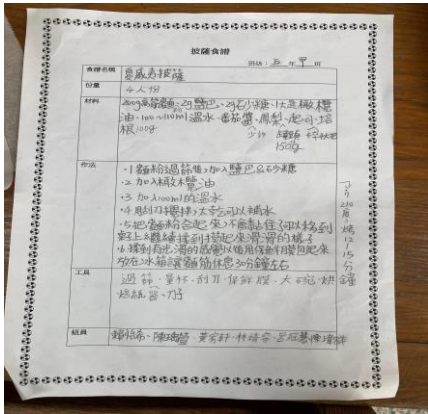 披薩食譜
班級：五 年 甲 班
食譜名稱 夏威夷披薩
份量 4人份
材料 200g高筋麵粉、2g鹽巴、2g砂糖、1大匙橄欖
油、100~110ml溫水、番茄醬、鳳梨、起司、培
根100g 少許 罐頭
150g
作法 ·1 麵粉過篩，加入鹽巴&砂糖
·2 加入橄欖油
·3 加入100ml的溫水
·4 用刮刀攪拌，太乾可以補水
·5 把麵粉合起來，不會黏住了可以移到
桌上繼續揉到揉起來滑滑的樣子
·6 揉到有光滑的感覺以後用保鮮膜包起來
放在冰箱讓麵筋休息30分鐘左右
210度，烤12~15分鐘
工具 過篩、量杯、刮刀、保鮮膜、大碗、烘
焙紙、刀子
組員